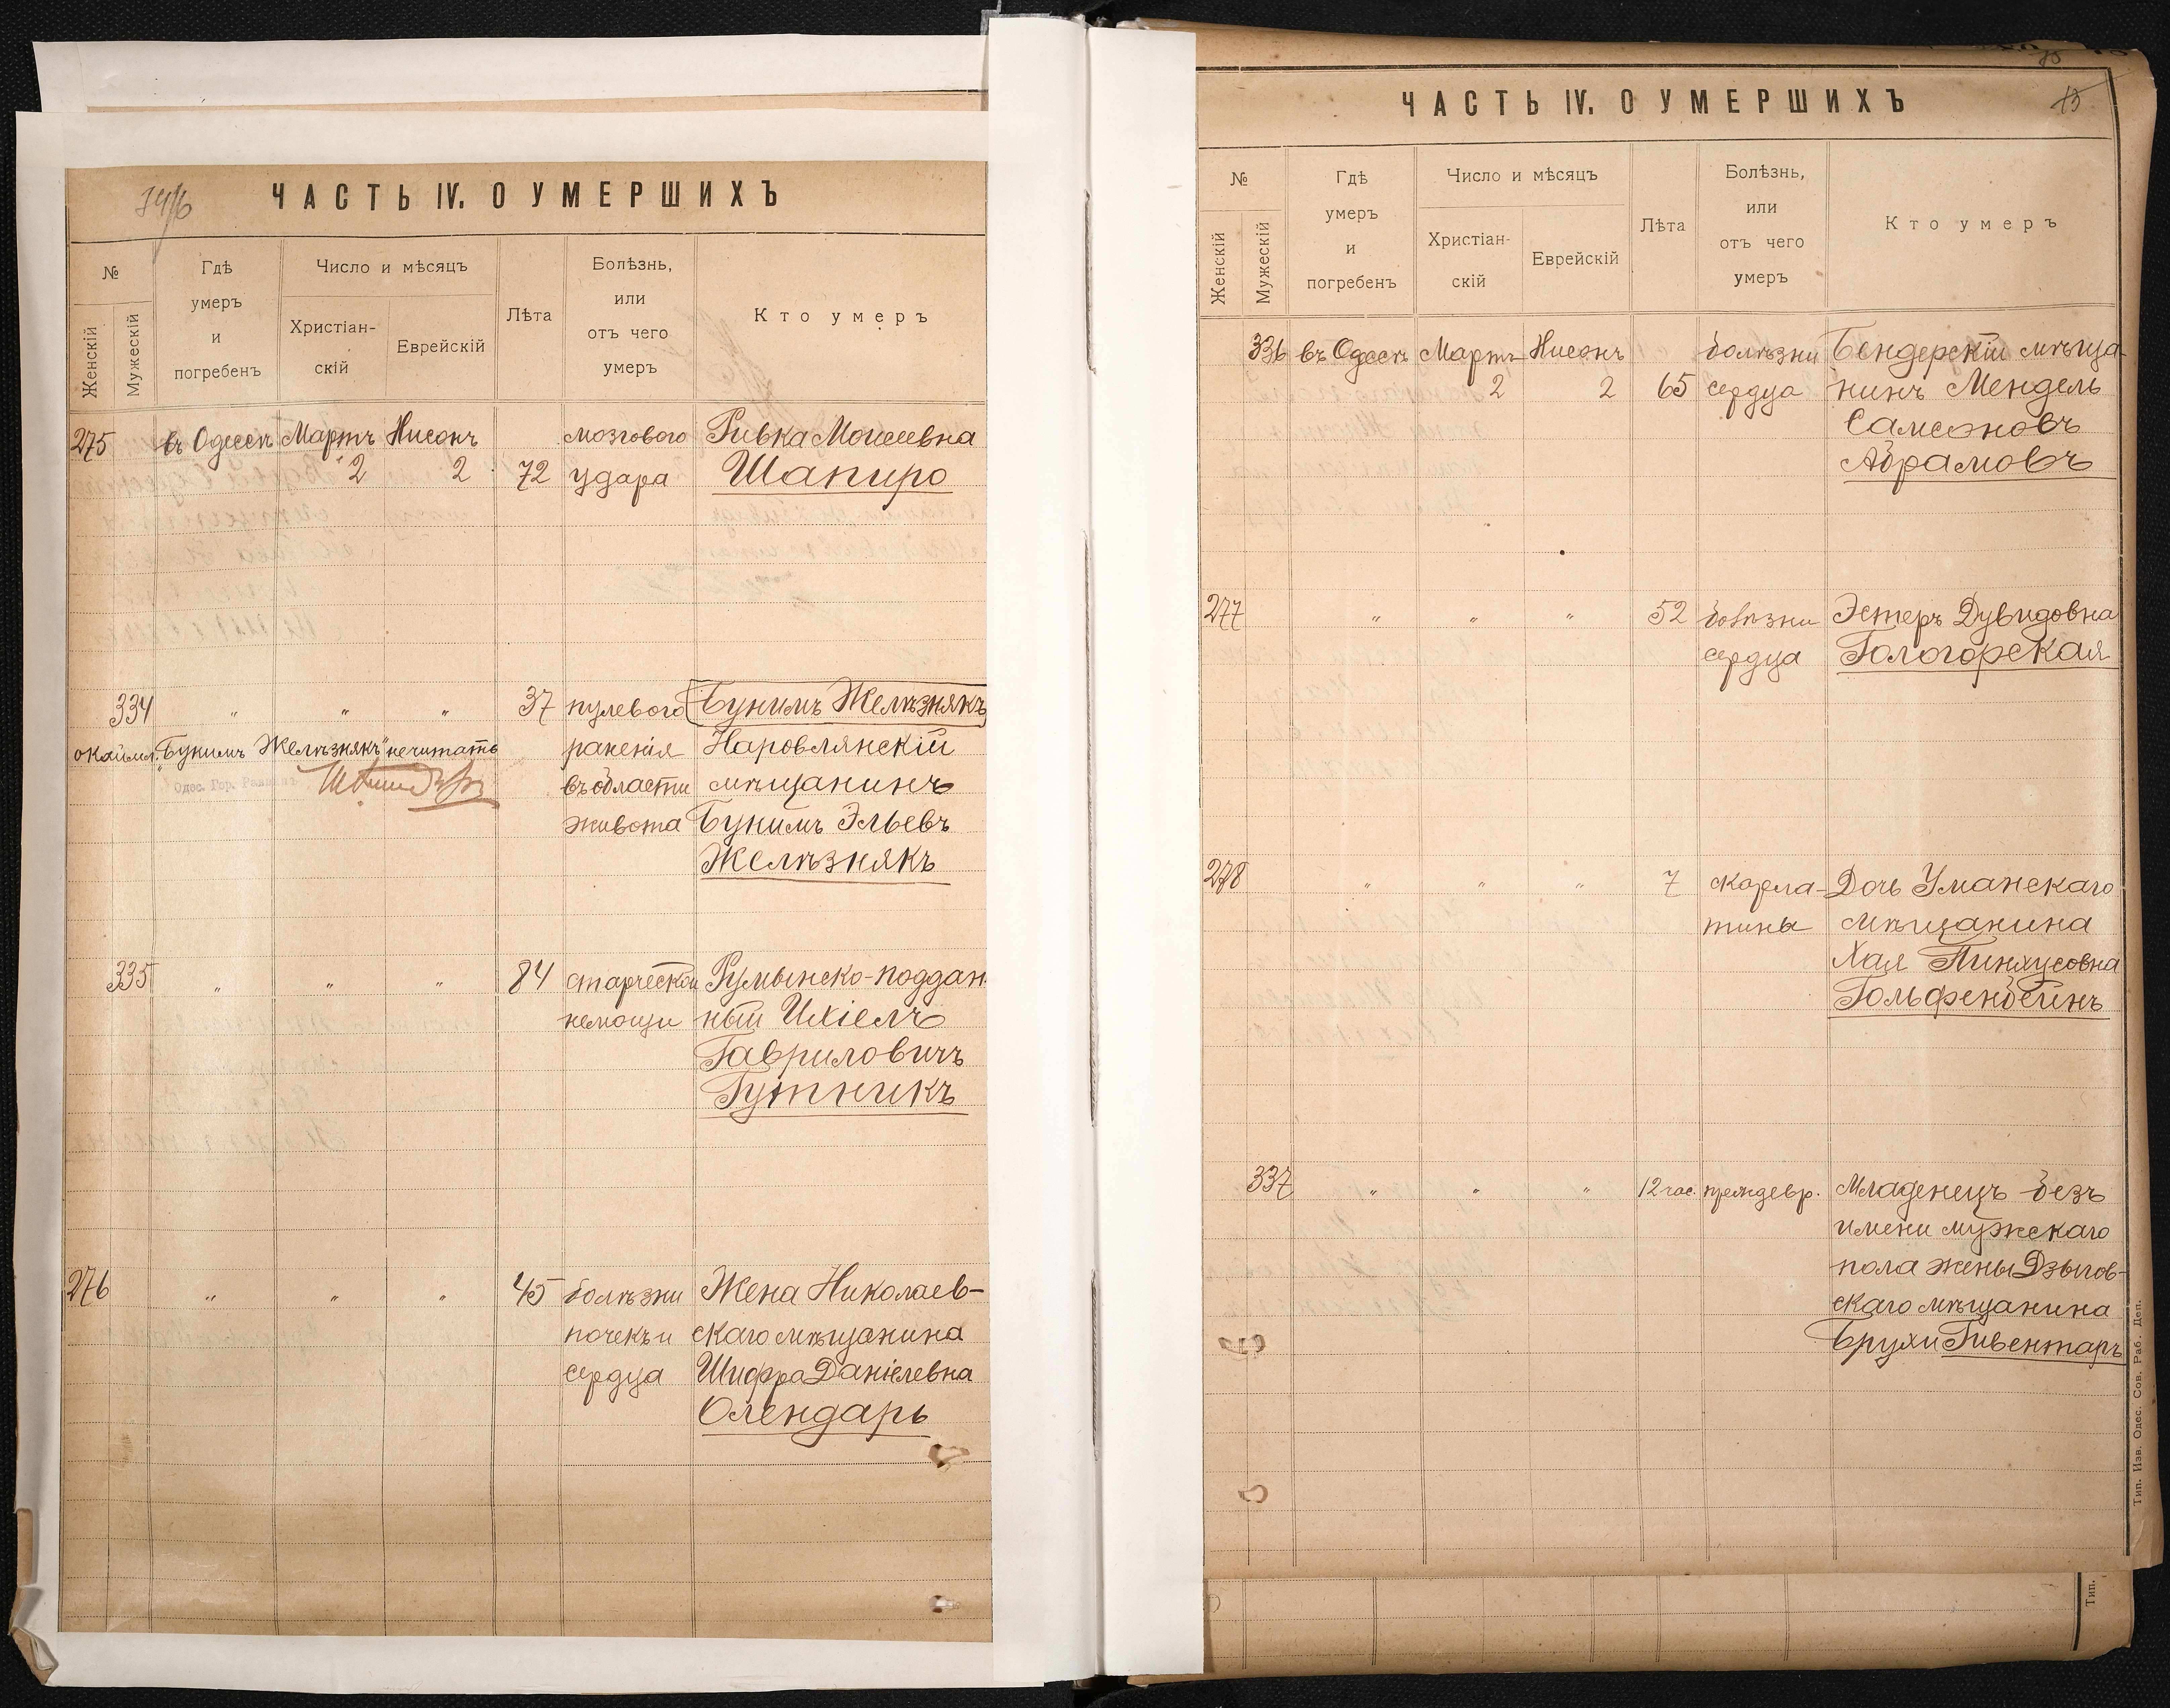 ЧАСТЬ IV. О УМЕРШИХЪ
№
Женскій
Мужескій
Гдѣ
умеръ
и
погребенъ
Число и мѣсяцъ
Христіан-
скій
Еврейскій
Лѣта
Болѣзнь,
или
отъ чего
умеръ
Кто умеръ
275 въ Одессѣ Мартъ Нисонъ мозгового Ривка Моисеевна
2 2 72 удара Шапиро
334 " " " 37 пулевого Бунимъ Желѣзнякъ
окаймл. "Бунимъ Желѣзнякъ" нечитать раненія Наровлянскій
Одес. Гор. Раввинъ въ области мѣщанинъ
живота Бунимъ Эльевъ
Желѣзнякъ
335 " " " 84 старческой Румынско-поддан-
немощи ный Ихіелъ
Гавриловичъ
Гутникъ
276 " " " 45 болѣзни Жена Николаев-
почекъ и скаго мѣщанина
сердца Шифра Даніелевна
Олендарь
75
ЧАСТЬ IV. О УМЕРШИХЪ
№
Женскій
Мужескій
Гдѣ
умеръ
и
погребенъ
Число и мѣсяцъ
Христіан-
скій
Еврейскій
Лѣта
Болѣзнь,
или
отъ чего
умеръ
Кто умеръ
336 въ Одессѣ Мартъ Нисонъ болѣзни Бендерскій мѣща-
2 2 65 сердца нинъ Мендель
Самсоновъ
Абрамовъ
277 " " " 52 болѣзни Эстеръ Дувидовна
сердца Гологорская
278 " " " 7 скарла- Дочь Уманскаго
тины мѣщанина
Хая Пинхусовна
Гольфенбейнъ
337 " " " 12 час. преждевр. Младенецъ безъ
имени мужскаго
пола жены Дзыгов-
скаго мѣщанина
Брухи Гивентаръ
Тип. Изв. Одес. Сов. Раб. Деп.
Тип.